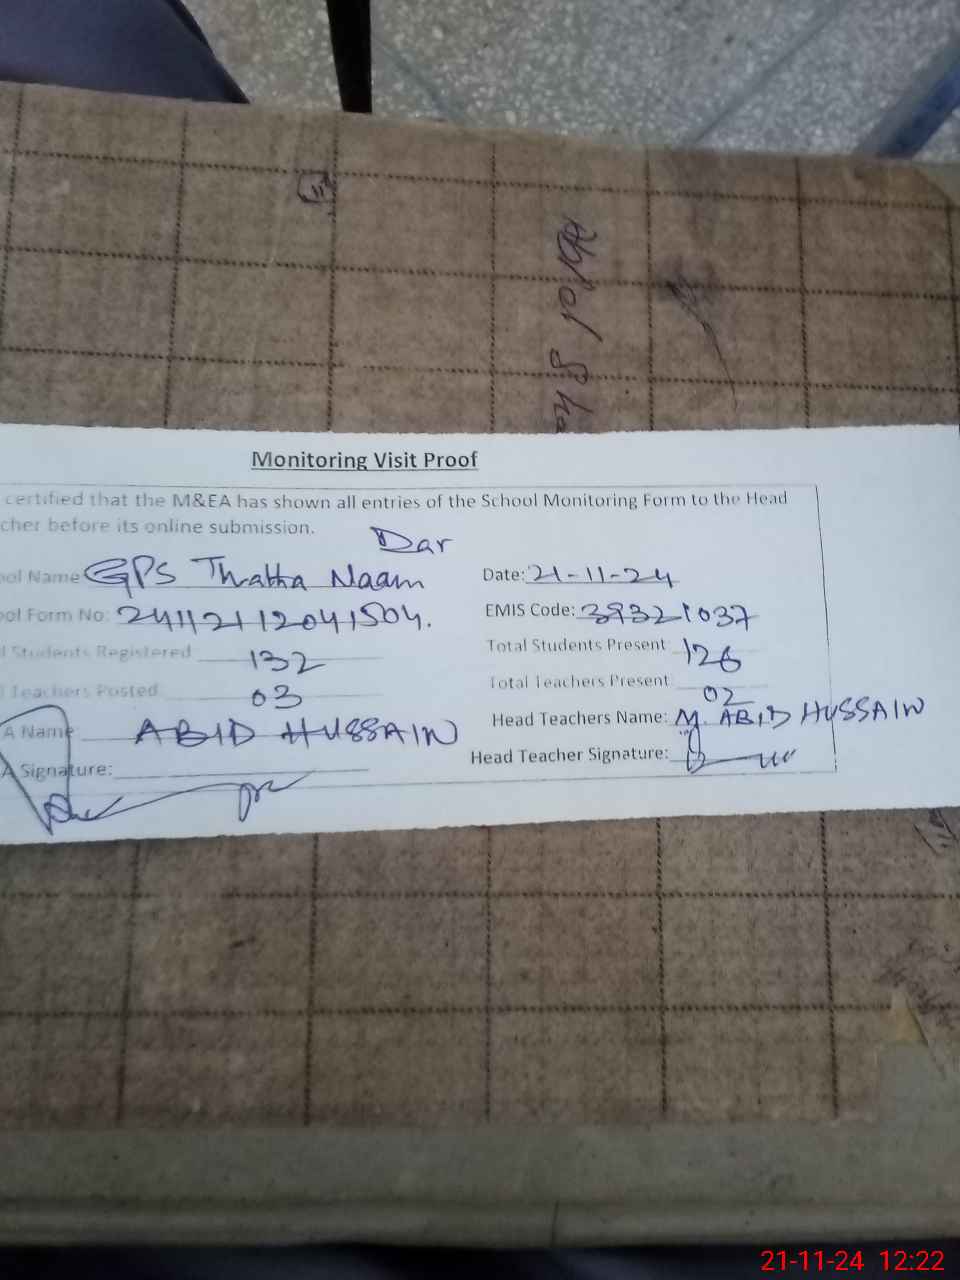 Monitoring Visit Proof
certified that the M&EA has shown all entries of the School Monitoring Form to the Head
cher before its online submission.
Dar
ool Name GPS Thatha Naam Date: 21-11-24
ool Form No: 24112112041504. EMIS Code: 39321037
l Students Registered 132 Total Students Present: 126
Teachers Posted 03 Total Teachers Present: 02
A Name ABID HUSSAIN Head Teachers Name: M. ABID HUSSAIN
A Signature: Head Teacher Signature:
21-11-24 12:22